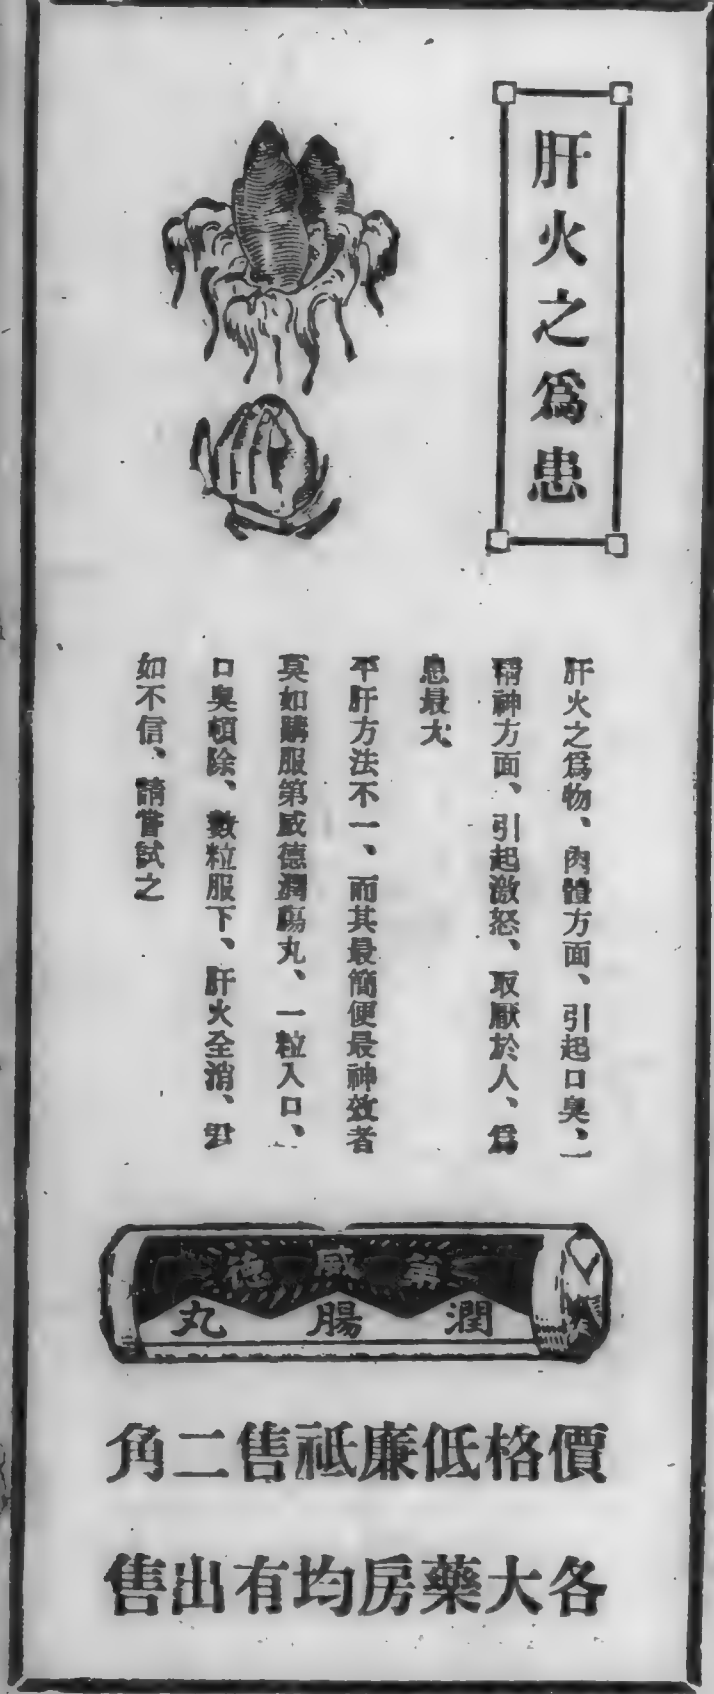 肝火之爲患
肝火之爲物、肉體方面、引起口臭、
精神方面、引起激怒、取厭於人、爲
患最大
平肝方法不一、而其最簡便最神效者
莫如購服第威德潤腸丸、一粒入口、
口臭頓除、數粒服下、肝火全消、君
如不信、請嘗試之
第威德
潤腸丸
價格低廉祗售二角
各大藥房均有出售